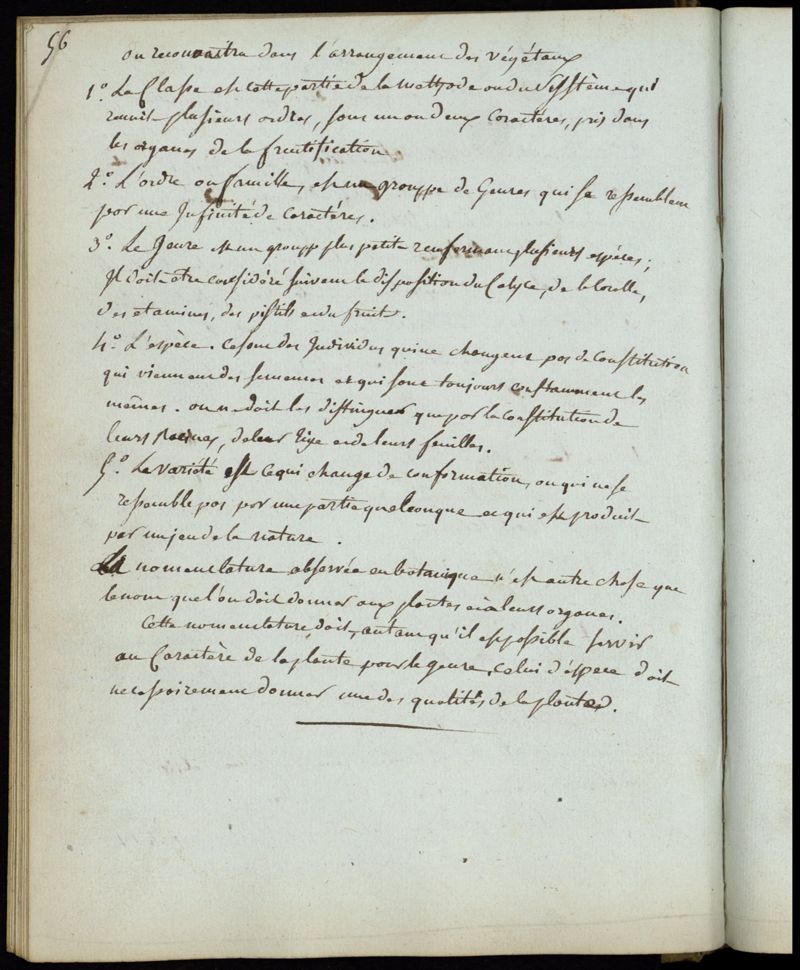 56
on reconnaitra dans l'arrangement des végétaux
1.° La Classe est cette partie de la methode ou du Système qui
reunit plusieurs ordres, sous un ou deux Caractères, pris dans
les organes de la fructification.
2.° L'ordre ou famille, est un grouppe de Genres qui se ressemblent
par une Infinité de Caractéres.
3.° Le Genre est un groupp plus petit renfermant plusieurs espéces;
Il doit etre considéré suivant la disposition du Calyce, de la Corolle,
des etamines, des pistils et du fruit.
4.° L'espèce. Ce sont des Individus qui ne changent pas de Constitution
qui viennent des semences et qui sont toujours constamment les
mêmes. on ne doit les distinguer que par la Constitution de
leurs Racines, de leur tige et de leurs feuilles.
5.° La variété est ce qui change de conformation, ou qui ne se
ressemble pas par une partie quelconque et qui est produit
par un jeu de la nature.
La nomenclature observée en botanique n'est autre chose que
le nom que l'on doit donner aux plantes et à leurs organes.
Cette nomenclature doit, autant qu'il est possible servir
au Caractère de la plante pour le genre, Celui d'éspece doit
necessairement donner une des qualités de la plante.